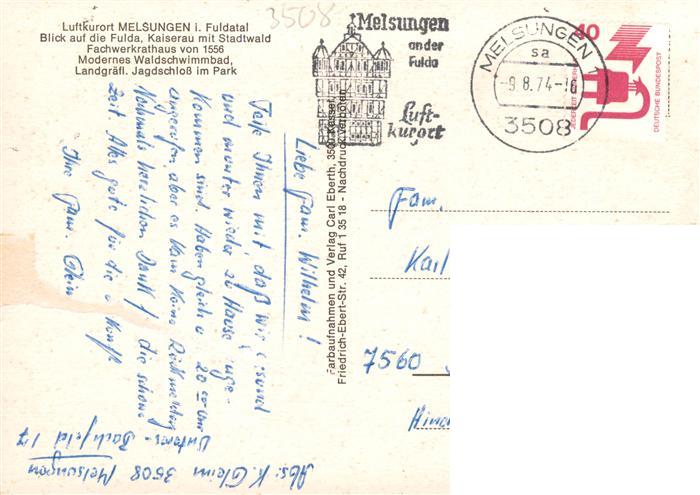 3508
Luftkurort MELSUNGEN i. Fuldatal
Blick auf die Fulda, Kaiserau mit Stadtwald
Fachwerkrathaus von 1556
Modernes Waldschwimmbad,
Landgräfl. Jagdschloß im Park
Melsungen
an der
Fulda
Luft-
kurort
MELSUNGEN 1
sa
-9.8.74-16
3508
40
JEDERZEIT SICHERHEIT
DEUTSCHE BUNDESPOST
Farbaufnahmen und Verlag Carl Eberth, 3500 Kassel,
Friedrich-Ebert-Str. 42, Ruf 1 35 18 - Nachdruck verboten
Liebe Fam. Wilhelm!
Teile Ihnen mit daß wir gesund
und munter wieder zu Hause ange-
kommen sind. Haben gleich u 20 00 Uhr
angerufen, aber es kam keine Rückmeldung
Nochmals herzlichen Dank f. die schöne
Zeit. Alles gute für die
Ihre Fam. Glein
Abs: K. Glein 3508 Melsungen
17
Fam.
Karl
7560